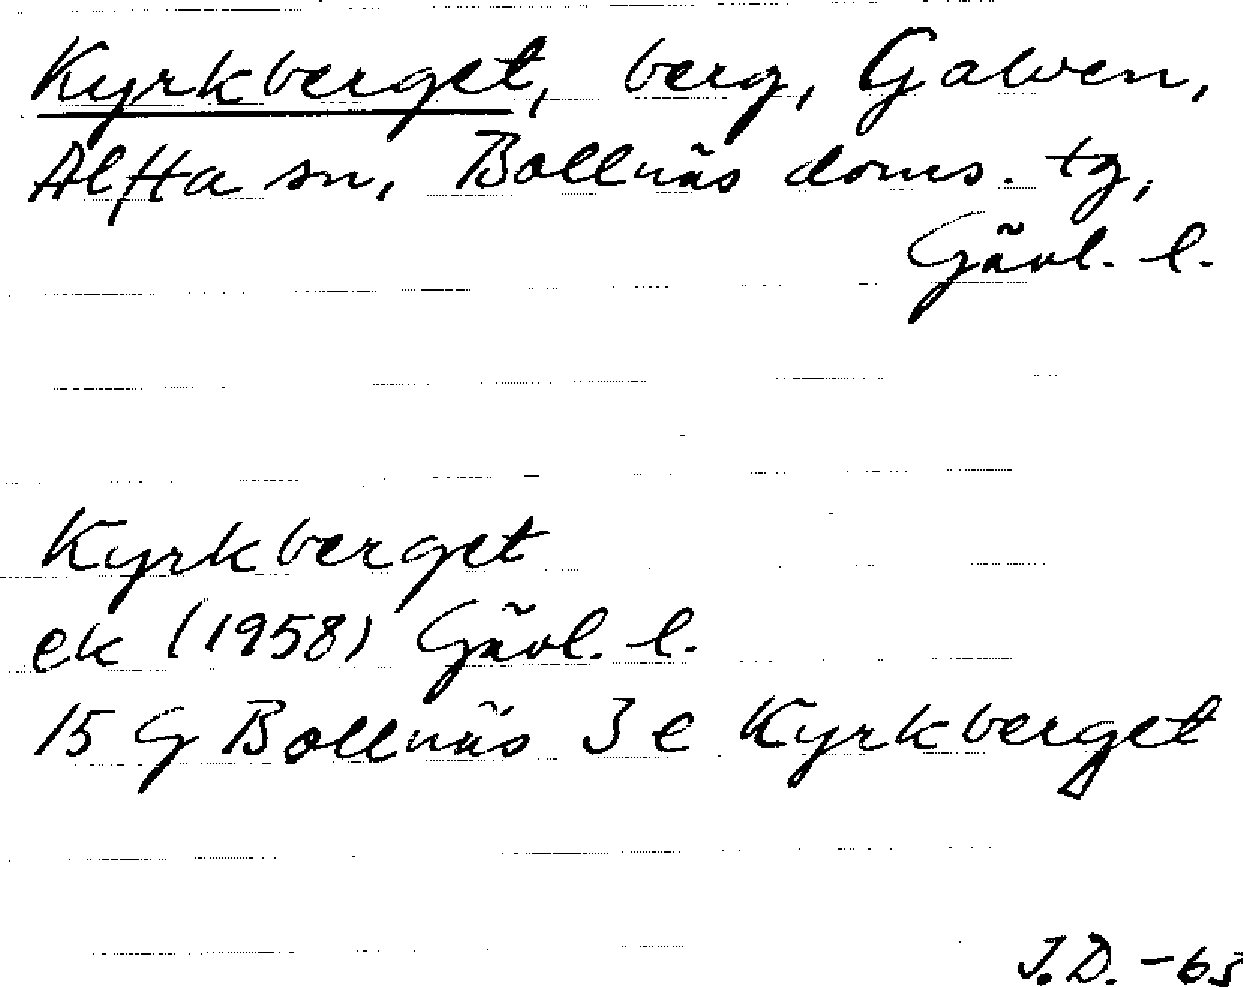 Kyrkberget, berg, Galven,
Alfta sn, Bollnäs doms. tg,
Gävl. l.
Kyrkberget
ek (1958) Gävl. l.
15 G Bollnäs 3 e Kyrkberget
J.D. -65